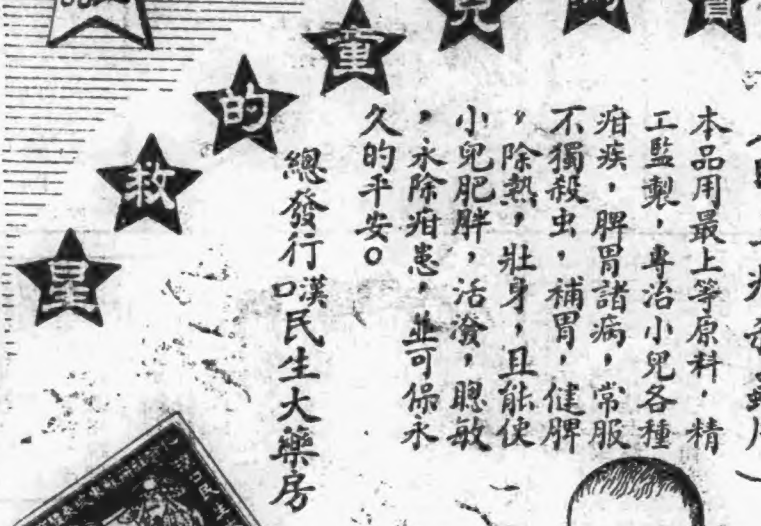 兒童的救星
本品用最上等原料，精
工監製，專治小兒各種
疳疾，脾胃諸病，常服
不獨殺虫，補胃，健脾
，除熱，壯身，且能使
小兒肥胖，活潑，聰敏
，永除疳患，並可保永
久的平安。
總發行漢口民生大藥房
口民生